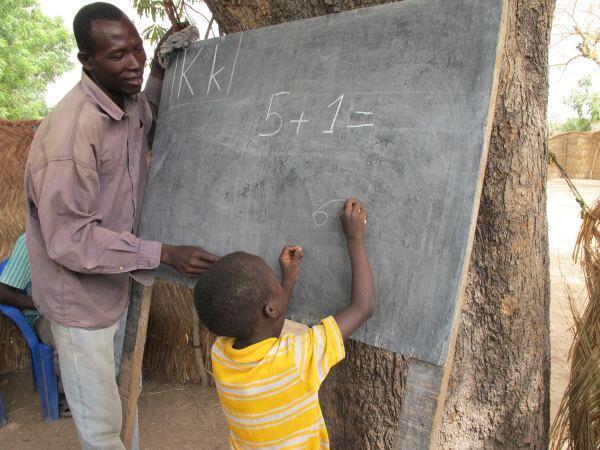 Kk
5+1=
6